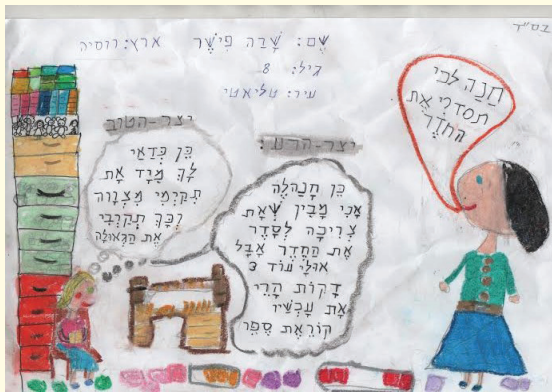 בס"ד
שֵׁם: שָׂרָה פִישֶׁר ארץ: רוסיה
גיל: 8
עיר: טוליאטי
חַנָה לכי
תסדרי את
החדר
יצר-הטוב
כֵּן כְּדַאי
לָךְ מִיָד אַת
תְקַיְמִי מִצְוָוה
וְכָּךְ תְקָרְבִי
אֶת הַגְאוּלָה
יצר-הרע:
כֵּן חָנָהלֶה
אֲנִי מֵבִין שֶׁאַת
צְרִיכָה לְסַדֵר
אֶת הַחֶדֶר אֲבָל
אוּלַי עוֹד 3
דָקוֹת הֲרֵי
אַת עַכְשָׁיו
קוֹרֵאת סֵפֶר